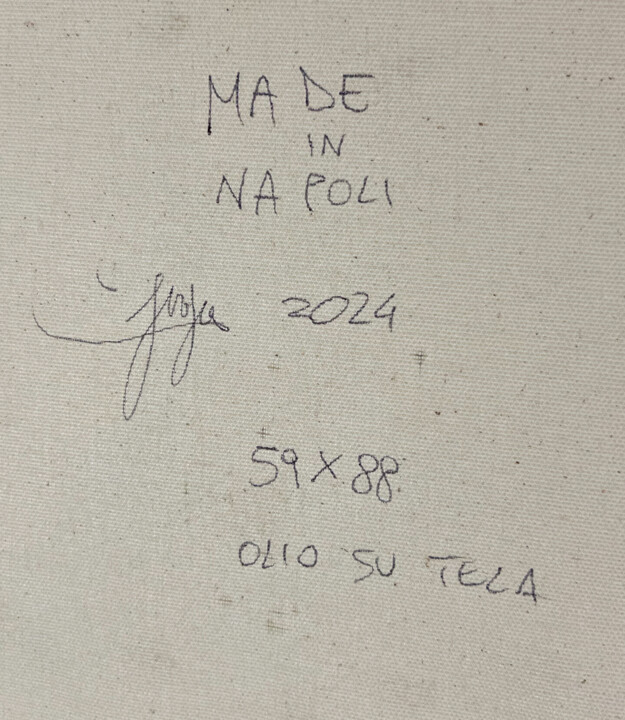 MADE
IN
NAPOLI
2024
59X88
OLIO SU TELA